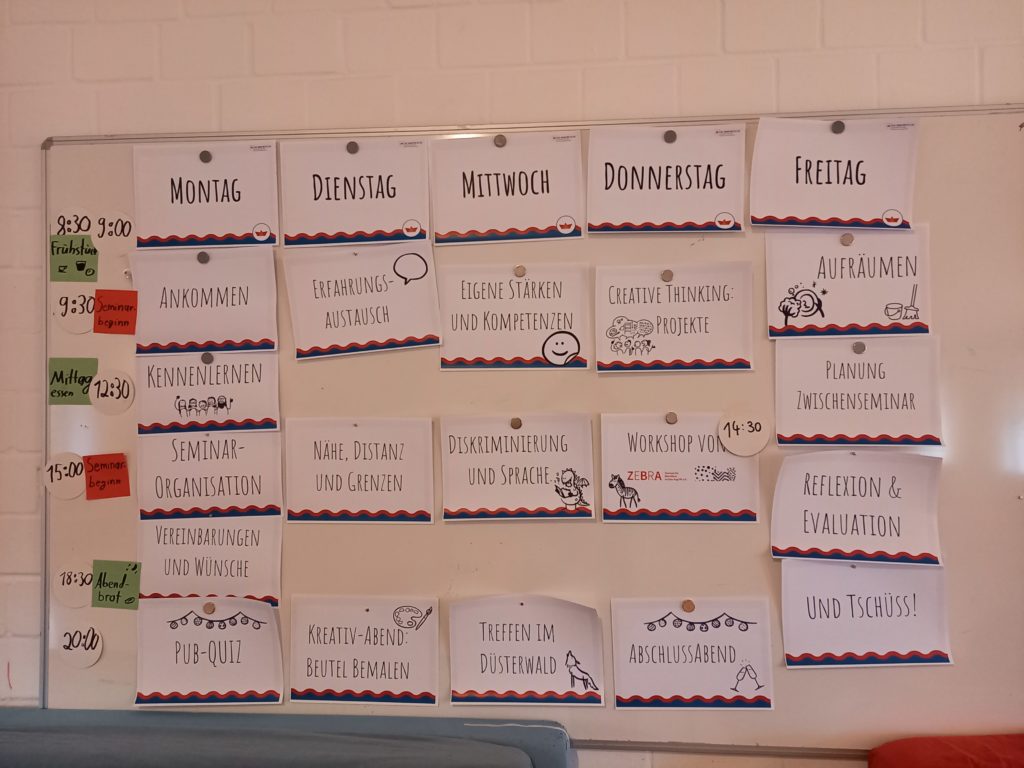 MONTAG
DIENSTAG
MITTWOCH
DONNERSTAG
FREITAG
8:30 9:00
Frühstück
9:30
Seminar-
beginn
Mittag
essen
12:30
15:00
Seminar-
beginn
18:30
Abend-
brot
20:00
ANKOMMEN
KENNENLERNEN
SEMINAR-
ORGANISATION
VEREINBARUNGEN
UND WÜNSCHE
PUB-QUIZ
ERFAHRUNGS-
AUSTAUSCH
NÄHE, DISTANZ
UND GRENZEN
KREATIV-ABEND:
BEUTEL BEMALEN
EIGENE STÄRKEN
UND KOMPETENZEN
DISKRIMINIERUNG
UND SPRACHE
TREFFEN IM
DÜSTERWALD
CREATIVE THINKING:
PROJEKTE
14:30
WORKSHOP VON
ZEBRA
ABSCHLUSSABEND
AUFRÄUMEN
PLANUNG
ZWISCHENSEMINAR
REFLEXION &
EVALUATION
UND TSCHÜSS!